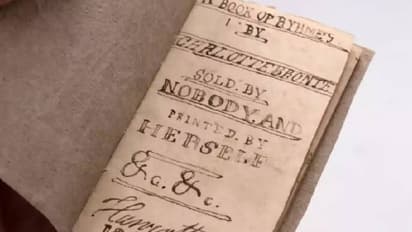 A BOOK OF RYHMES
BY
CHARLOTTE BRONTE
SOLD.BY
NOBODY.AND
PRINTED.BY
HERSELF
&c. &c.